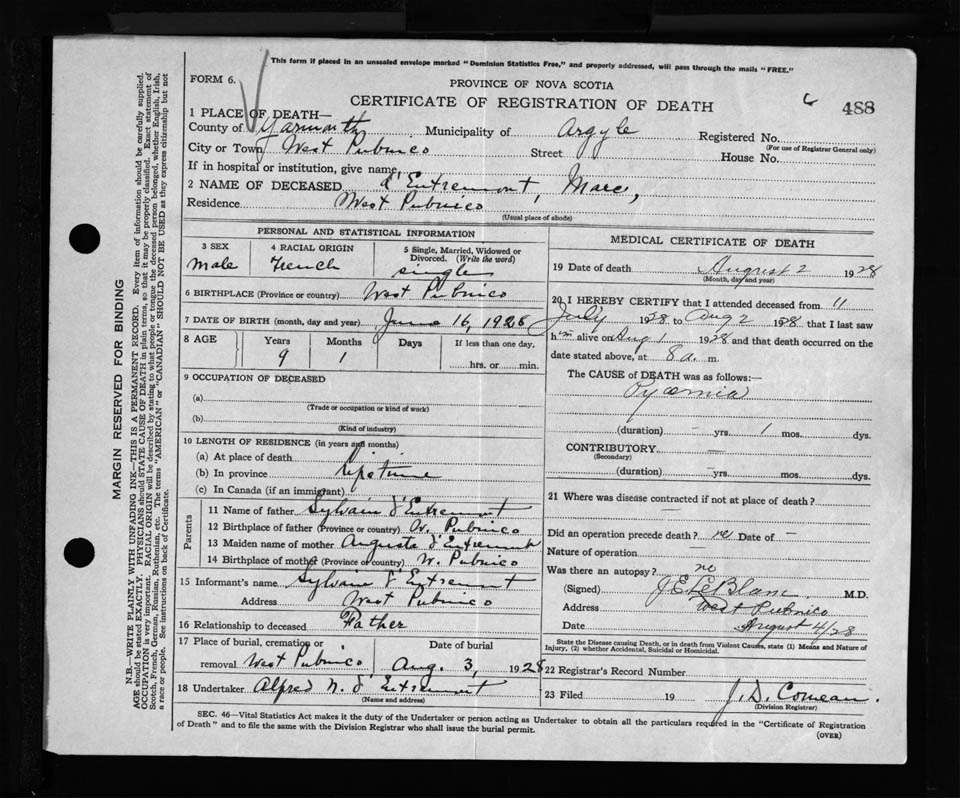 This form if placed in an unsealed envelope marked "Dominion Statistics Free," and properly addressed, will pass through the mails "FREE."
FORM 6.
PROVINCE OF NOVA SCOTIA
CERTIFICATE OF REGISTRATION OF DEATH
488
1 PLACE OF DEATH—
County of Yarmouth Municipality of Argyle Registered No.
(For use of Registrar General only)
City or Town West Pubnico Street House No.
If in hospital or institution, give name
2 NAME OF DECEASED d'Entremont, Marc,
Residence West Pubnico
(Usual place of abode)
PERSONAL AND STATISTICAL INFORMATION
3 SEX 4 RACIAL ORIGIN 5 Single, Married, Widowed or Divorced. (Write the word)
Male French single
6 BIRTHPLACE (Province or country) West Pubnico
7 DATE OF BIRTH (month, day and year) June 16, 1928
8 AGE Years Months Days If less than one day,
9 1 hrs. or min.
9 OCCUPATION OF DECEASED
(a)
(Trade or occupation or kind of work)
(b)
(Kind of industry)
10 LENGTH OF RESIDENCE (in years and months)
(a) At place of death
(b) In province lifetime
(c) In Canada (if an immigrant)
Parents
11 Name of father Sylvain d'Entremont
12 Birthplace of father (Province or country) W. Pubnico
13 Maiden name of mother Augusta d'Entremont
14 Birthplace of mother (Province or country) W. Pubnico
15 Informant's name Sylvain d'Entremont
Address West Pubnico
16 Relationship to deceased Father
17 Place of burial, cremation or removal West Pubnico Date of burial Aug. 3, 1928
18 Undertaker Alfred N. d'Entremont
(Name and address)
MEDICAL CERTIFICATE OF DEATH
19 Date of death August 2 1928
(Month, day and year)
20 I HEREBY CERTIFY that I attended deceased from 11
July 1928 to Aug 2 1928 that I last saw
him alive on Aug 1 1928 and that death occurred on the
date stated above, at 8 a. m.
The CAUSE of DEATH was as follows:—
Pyaemia
(duration) – yrs. 1 mos. dys.
CONTRIBUTORY. —
(Secondary)
(duration) – yrs. mos. dys.
21 Where was disease contracted if not at place of death?
—
Did an operation precede death? no Date of –
Nature of operation —
Was there an autopsy? no
(Signed) J E LeBlanc M.D.
Address West Pubnico
Date August 4/28
State the Disease causing Death, or in death from Violent Causes, state (1) Means and Nature of
Injury, (2) whether Accidental, Suicidal or Homicidal.
22 Registrar's Record Number
23 Filed 19 J. D. Comeau
(Division Registrar)
SEC. 46—Vital Statistics Act makes it the duty of the Undertaker or person acting as Undertaker to obtain all the particulars required in the "Certificate of Registration
of Death" and to file the same with the Division Registrar who shall issue the burial permit.
(OVER)
MARGIN RESERVED FOR BINDING
N.B.—WRITE PLAINLY WITH UNFADING INK—THIS IS A PERMANENT RECORD. Every item of information should be carefully supplied.
AGE should be stated EXACTLY. PHYSICIANS should STATE CAUSE OF DEATH in plain terms, so that it may be properly classified. Exact statement of
OCCUPATION is very important. RACIAL ORIGIN will be described by stating to what people or tongue the deceased person belonged, whether English, Irish,
Scotch, French, German, Russian, Ruthenian, etc. The terms "AMERICAN" or "CANADIAN" SHOULD NOT BE USED as they express citizenship but not
a race or people. See instructions on back of Certificate.